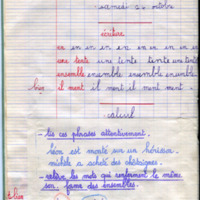 samedi 26 octobre
écriture
en en en en en en en en en
une tente une tente tente une tente
ensemble ensemble ensemble ensemble
hier il ment il ment il ment ment
calcul
- lis ces phrases attentivement.
Léon est monté sur un
a acheté des châtaignes.
- les mots qui renferment le même
son, fame des ensembles.